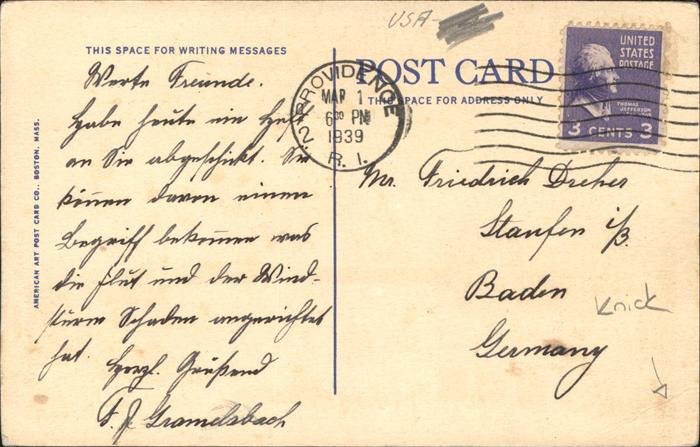 USA
THIS SPACE FOR WRITING MESSAGES
Werte Freunde.
Habe heute ein Heft
an Sie abgeschickt. Sie
können davon einen
Begriff bekommen was
die Flut und der Wind-
sturm Schaden angerichtet
hat. Herzl. Grüßend
F. J. Gramelsbach
AMERICAN ART POST CARD CO., BOSTON, MASS.
PROVIDENCE
MAR 1
6 00 PM
1939
R. I.
POST CARD
THIS SPACE FOR ADDRESS ONLY
UNITED
STATES
POSTAGE
THOMAS
JEFFERSON
3 CENTS 3
Mr. Friedrich Dreher
Staufen i/B.
Baden
Germany
Knick